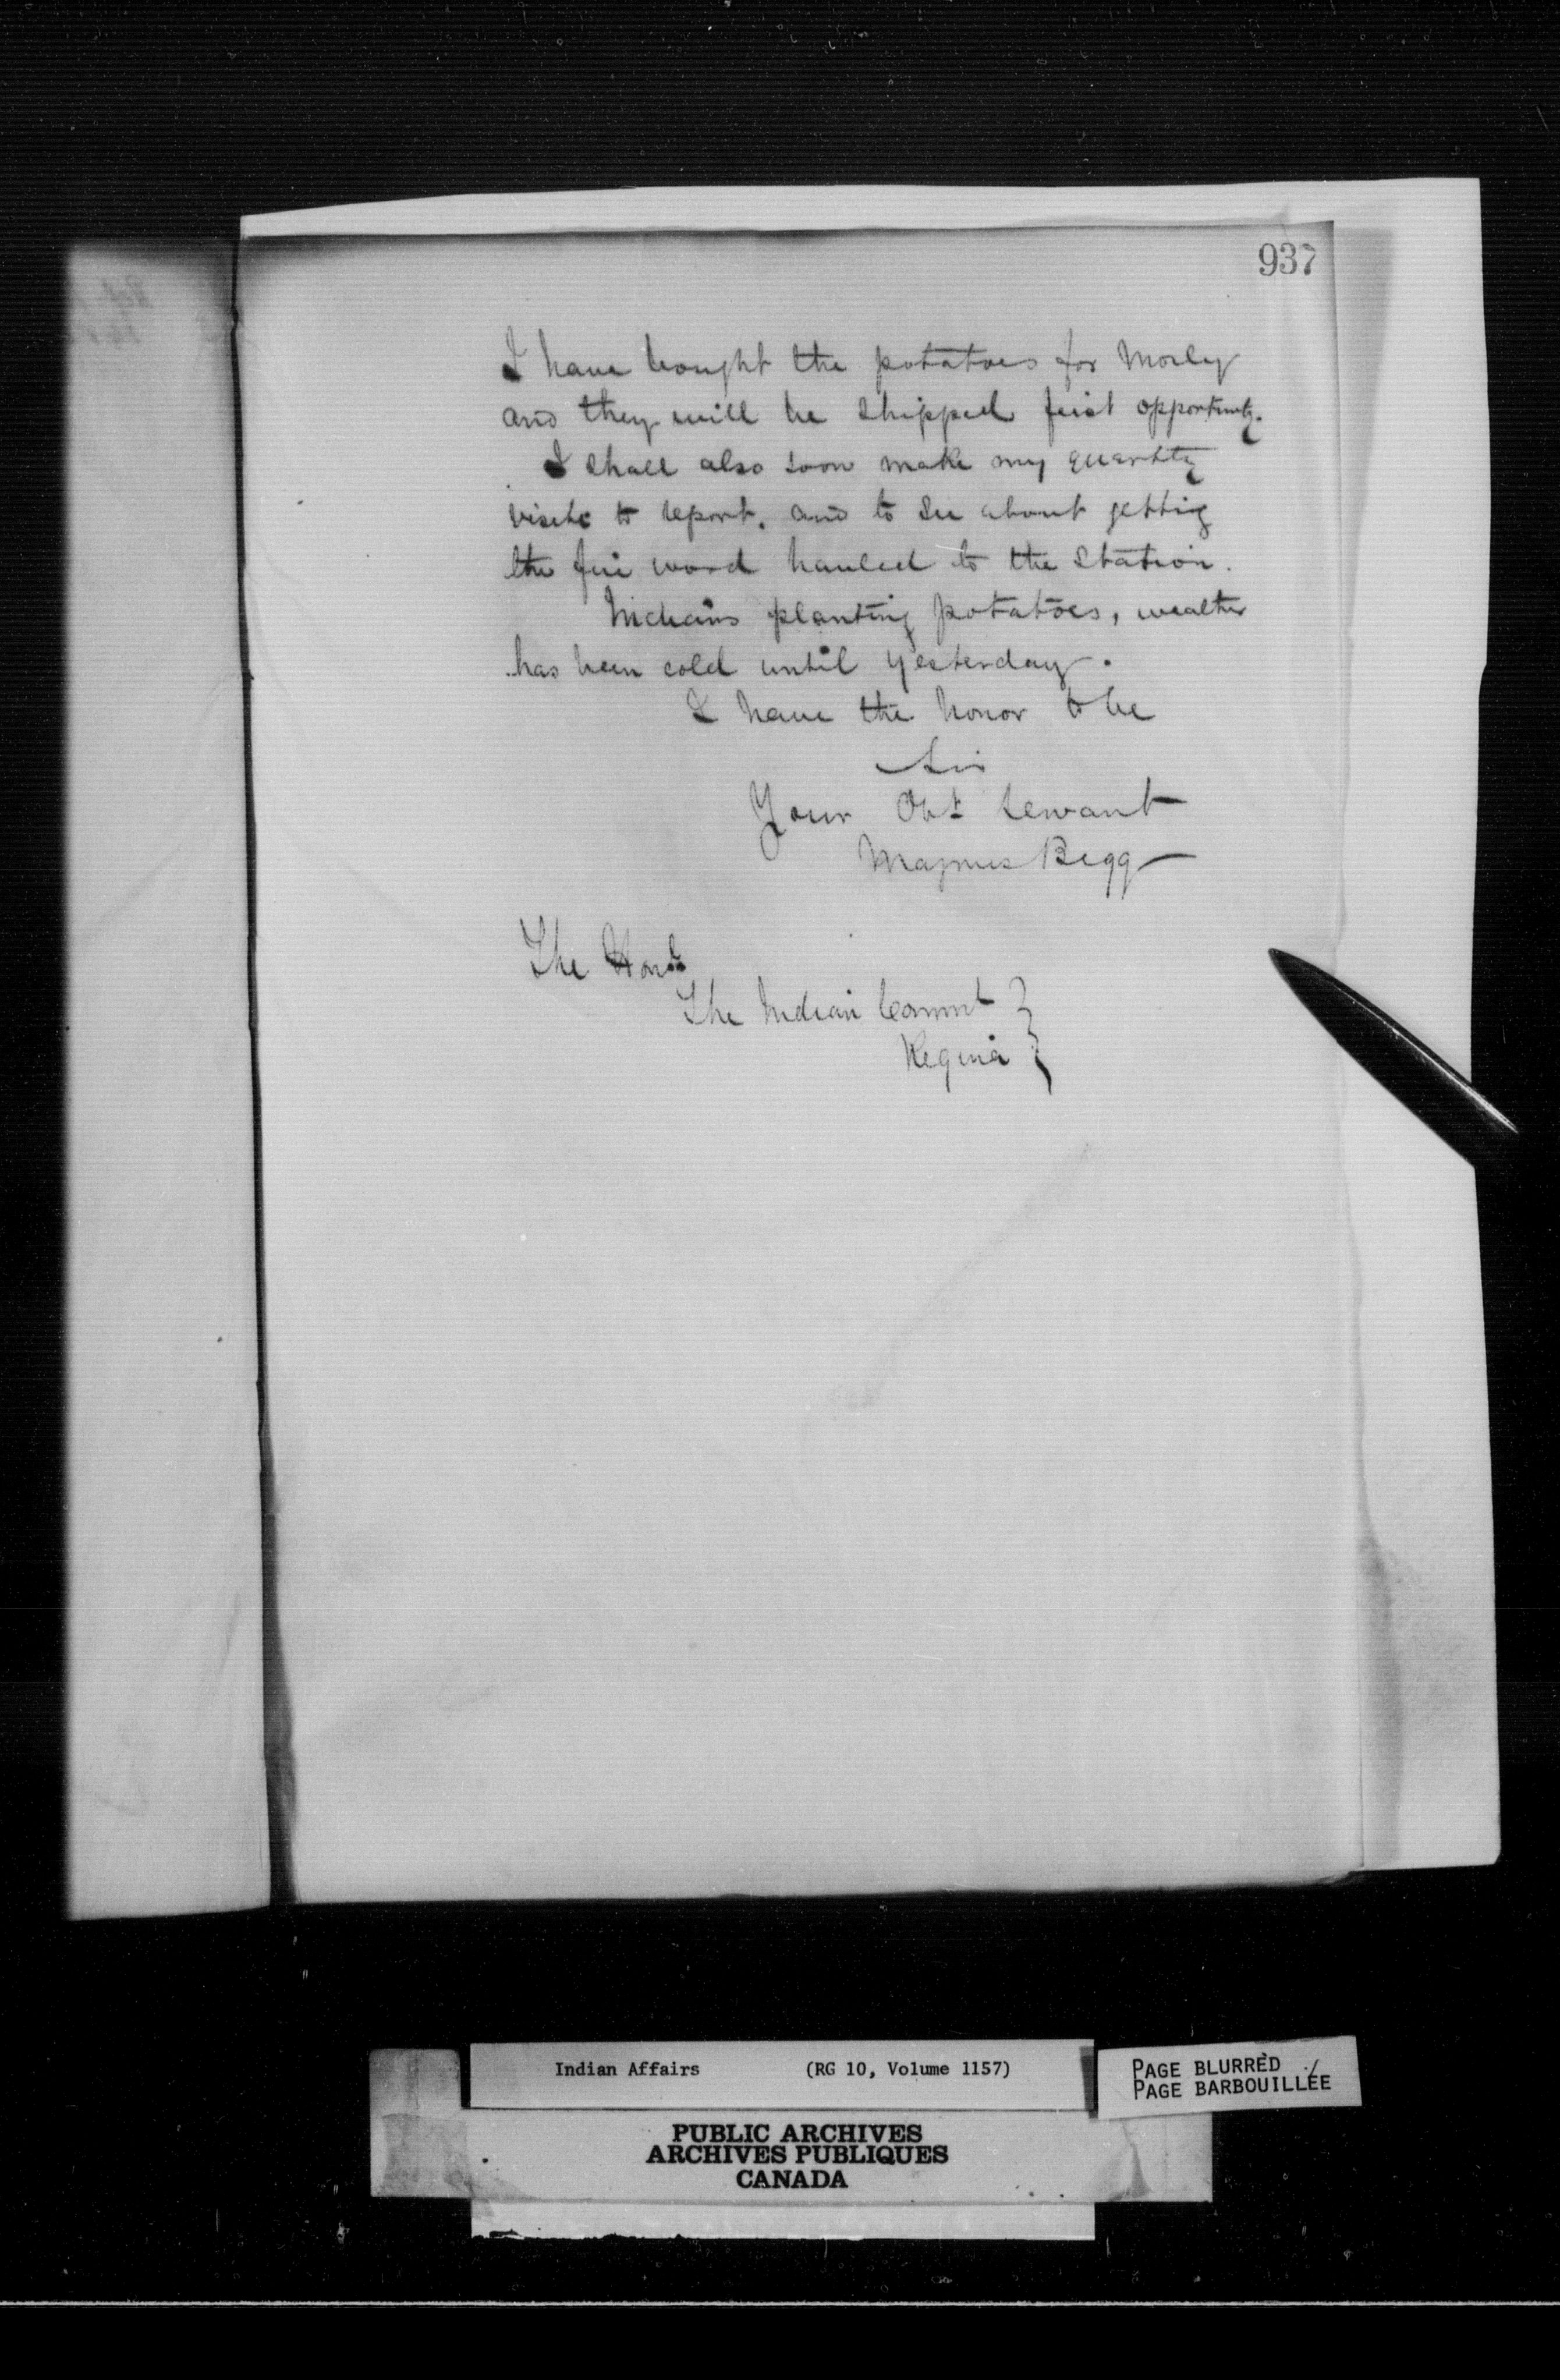 937
I have bought the potatoes for Morley
and they will be shipped first opportunity.
I shall also soon make my quarterly
visits to report, and to see about getting
the fire wood hauled to the Station.
Indians planting potatoes, weather
has been cold until yesterday.
I have the honor to be
Sir
Your Obt Servant
Magnus Begg
The
The Indian Commr
Regina
Indian Affairs (RG 10, Volume 1157)
PAGE BLURRED
PAGE BARBOUILLÉE
PUBLIC ARCHIVES
ARCHIVES PUBLIQUES
CANADA